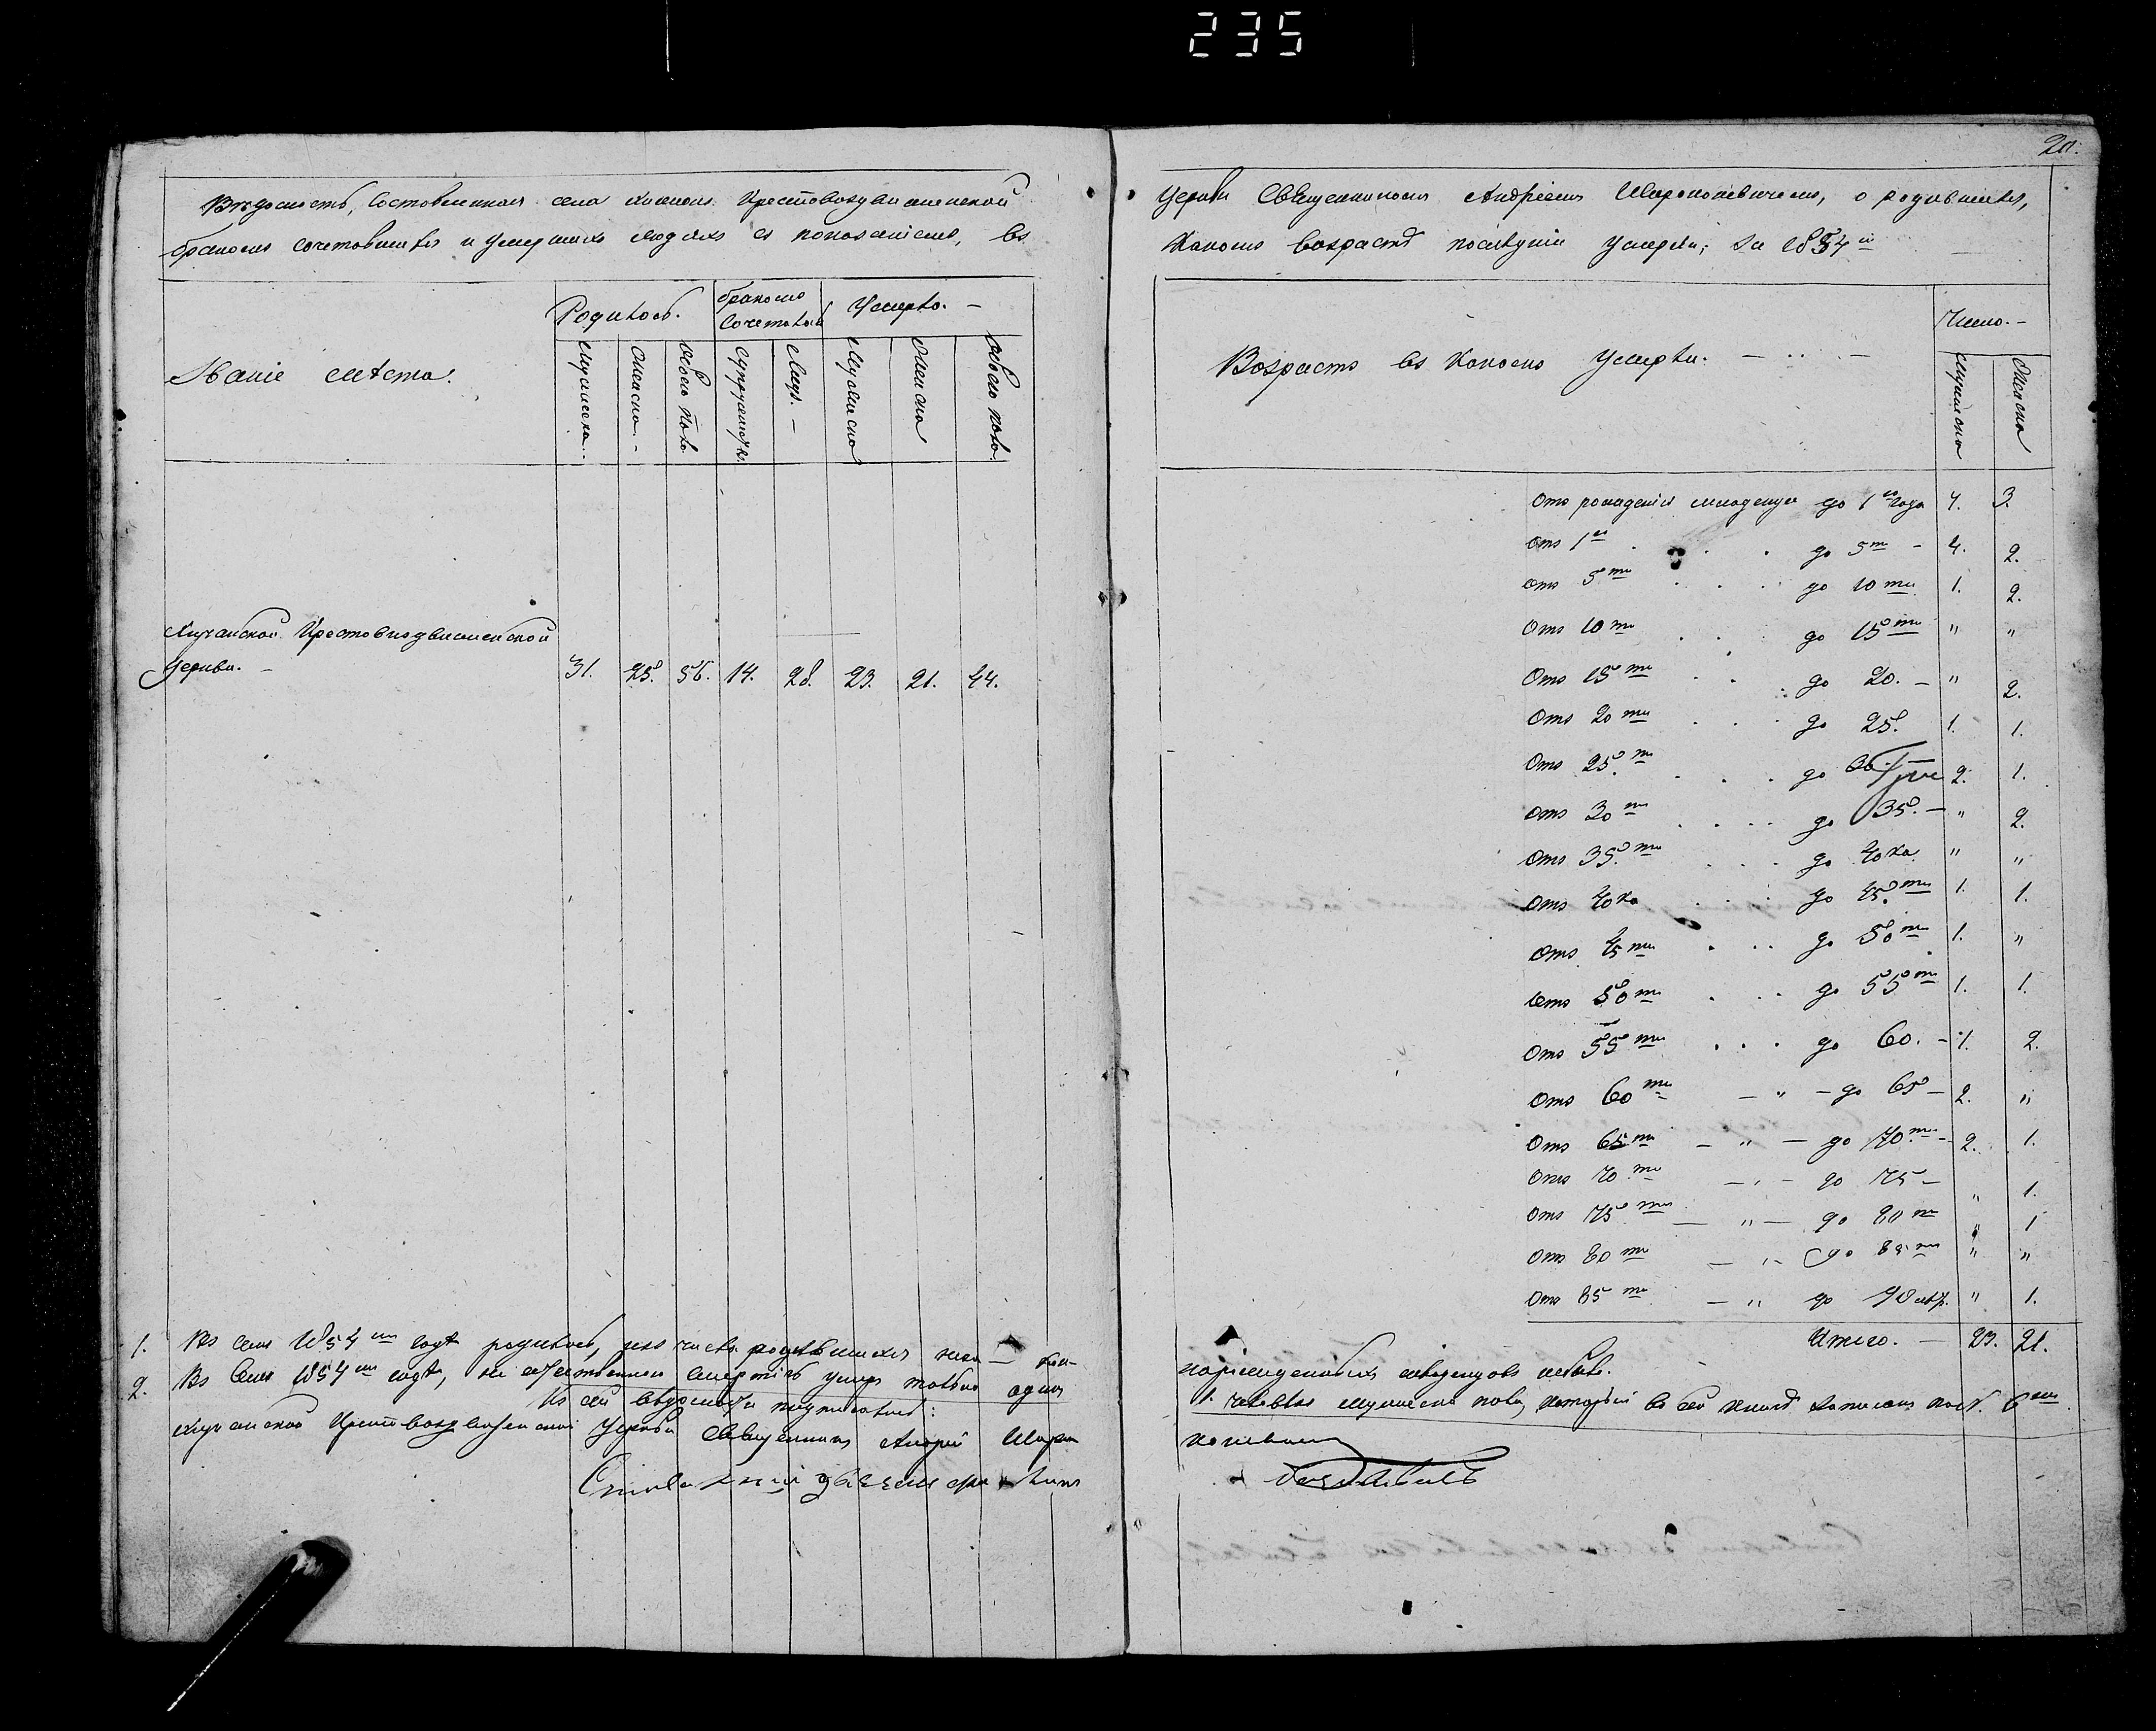 235
20.
Вѣдомость, составленная села Кожанки Крестовоздвиженской
церкви Священникомъ Андреемъ о родившихся,
бракомъ сочетавшихся и умершихъ людяхъ съ показаніемъ, въ
какомъ возрастѣ послѣдніе умерли; за 1854й
Званіе мѣста.
Родилось.
бракомъ сочеталось
Умерло. —
Мужеска. Женска. — Обоего пола Супружествъ. Лицъ. — Мужеска Женска Обоего пола.
Крестовоздвиженской
Церкви. — 31. 25. 56. 14. 28. 23. 21. 44.
Возрастъ въ какомъ умерли. —
Число. —
Мужеска Женска
Отъ рожденія младенцы до 1го года 4. 3.
Отъ 1го до 5ти — 4. 2.
Отъ 5ти до 10ти 1. 2.
Отъ 10ти до 15ти " "
Отъ 15ти до 20. — " 2.
Отъ 20ти до 25. 1. 1.
Отъ 25ти до 2. 1.
Отъ 30ти до 35. — " 2.
Отъ 35ти до 40ка " "
Отъ 40ка до 45ти 1. 1.
Отъ 45ти до 50ти 1. "
Отъ 50ти до 55ти 1. 1.
Отъ 55ти до 60. — 1. 2.
Отъ 60ти — " — до 65 — 2. "
Отъ 65ти — " — до 70ти — 2. 1.
Отъ 70ти — " — до 75 — " 1.
Отъ 75ти — " — до 80ти " 1
Отъ 80ти — " — до 85ти " "
Отъ 85ти — " до 90 " 1.
Итого. — 23. 21.
1. Въ семъ 1854мъ годѣ родилось, изъ числа родившихся
младенцовъ небыло.
2. Въ семъ 1854мъ годѣ, не естественною смертію умеръ только одинъ
1. человѣкъ мужеска пола, который въ сей книгѣ записанъ под N. 6мъ
Къ сей вѣдомости подписался:
Крестовоздвиженской Церкви Священникъ Андрей